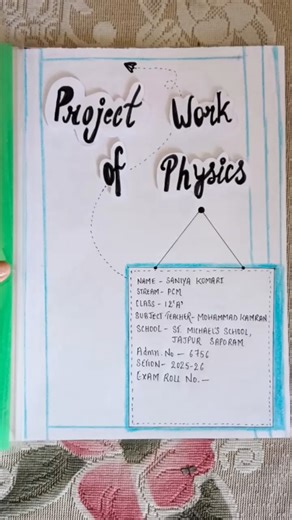 Project Work
of Physics
NAME - SANIYA KUMARI
STREAM - PCM
CLASS - 12"A"
SUBJECT TEACHER - MOHAMMAD KAMRAN
SCHOOL - ST. MICHAEL'S SCHOOL,
JAJPUR SAPORAM
Admn. No - 6756
SETION - 2025-26
EXAM ROLL NO. -